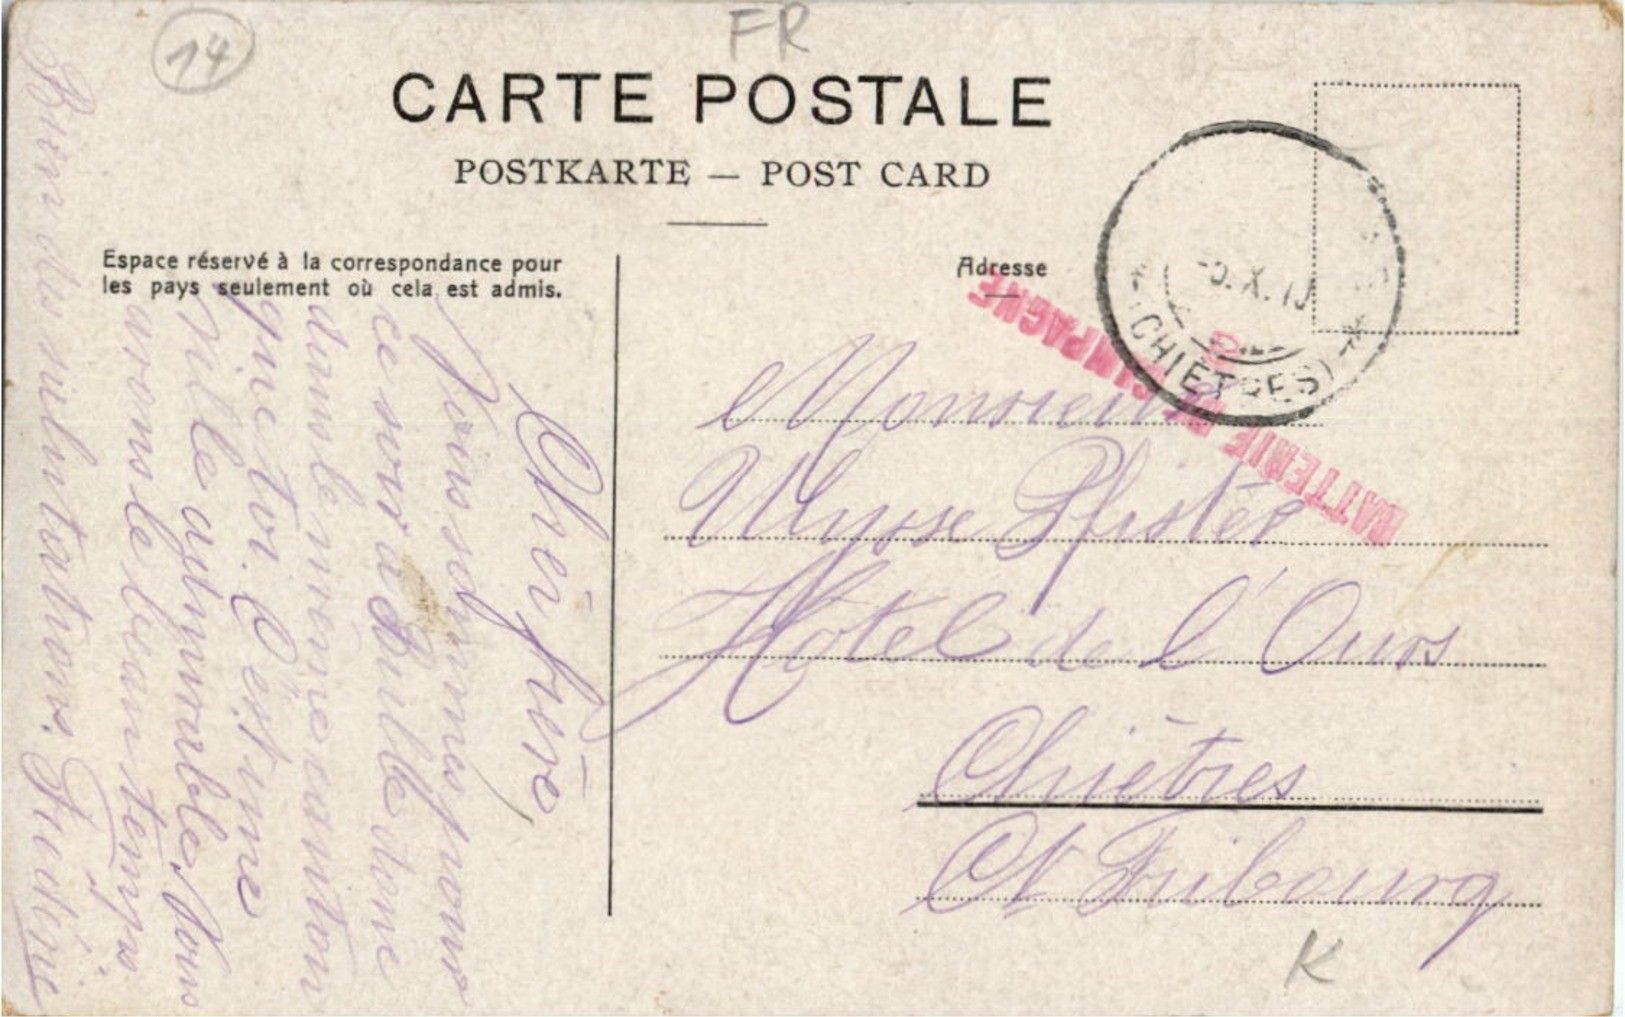 14
FR
CARTE POSTALE
POSTKARTE — POST CARD
Espace réservé à la correspondance pour
les pays seulement où cela est admis.
Adresse
X.
(CHIÈTRES)
BATTERIE DE CAMPAGNE
Monsieur
Ulysse Pfister
Hôtel de l'Ours
Chiètres
Ct Fribourg
K
Cher frère
Nous sommes pour
ce soir à Bulle donc
dans le même canton
que toi. C'est une
ville admirable. Nous
avons le beau temps.
Bien des salutations.